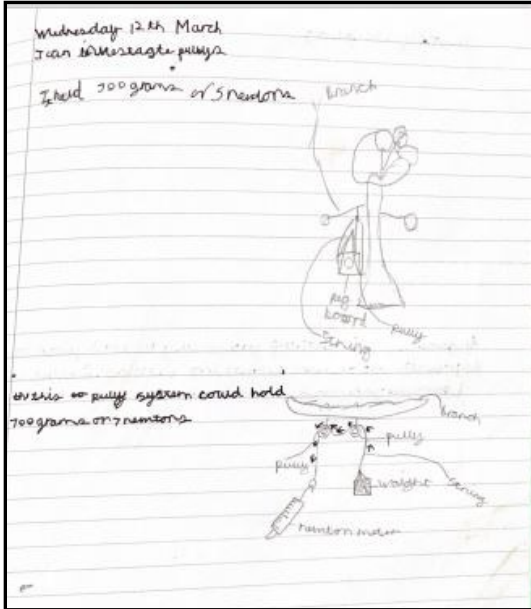 Wednesday 12th March
I can investagte pullys
I held 500 grams or 5 newtons
Branch
peg
board
pully
String
pully system could hold
700 grams or 7 newtons
branch
pully
pully
waight
String
newton meter